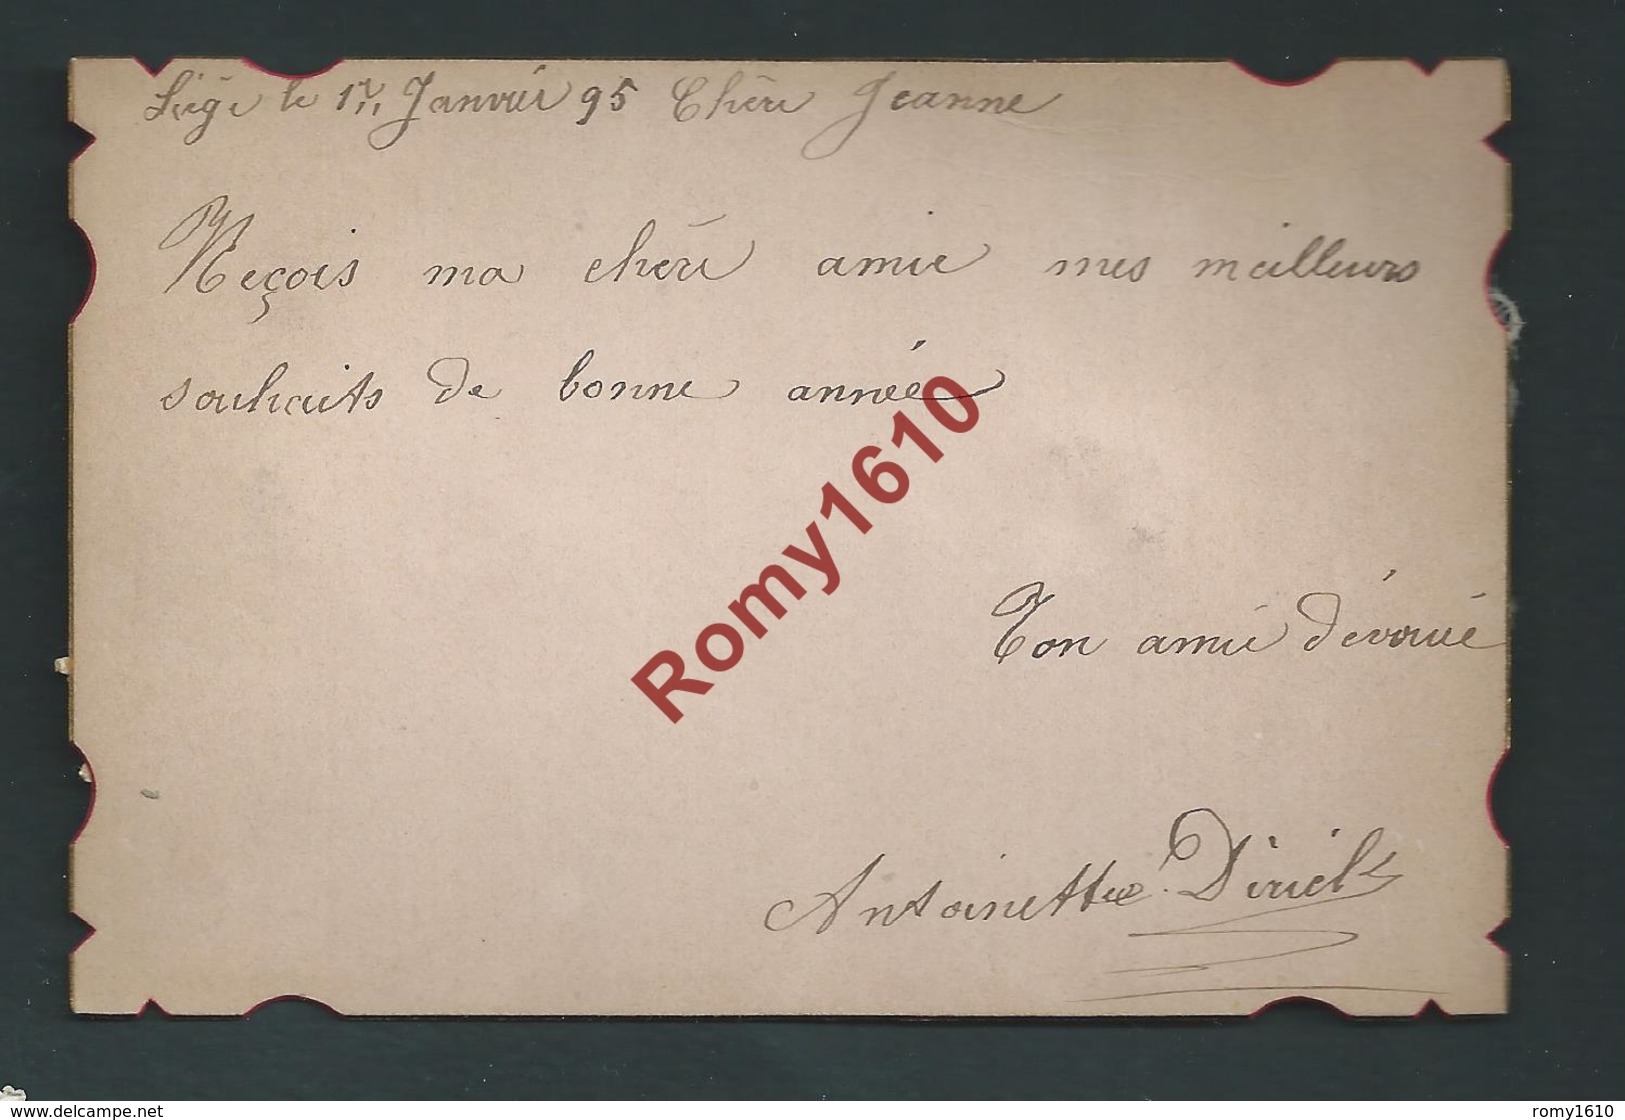 Liége le 1r, Janvier 95 Chère Jeanne
Reçois ma chère amie mes meilleurs
souhaits de bonne année
Ton amie dévoué
Antoinette
Romy1610
www.delcampe.net
romy1610